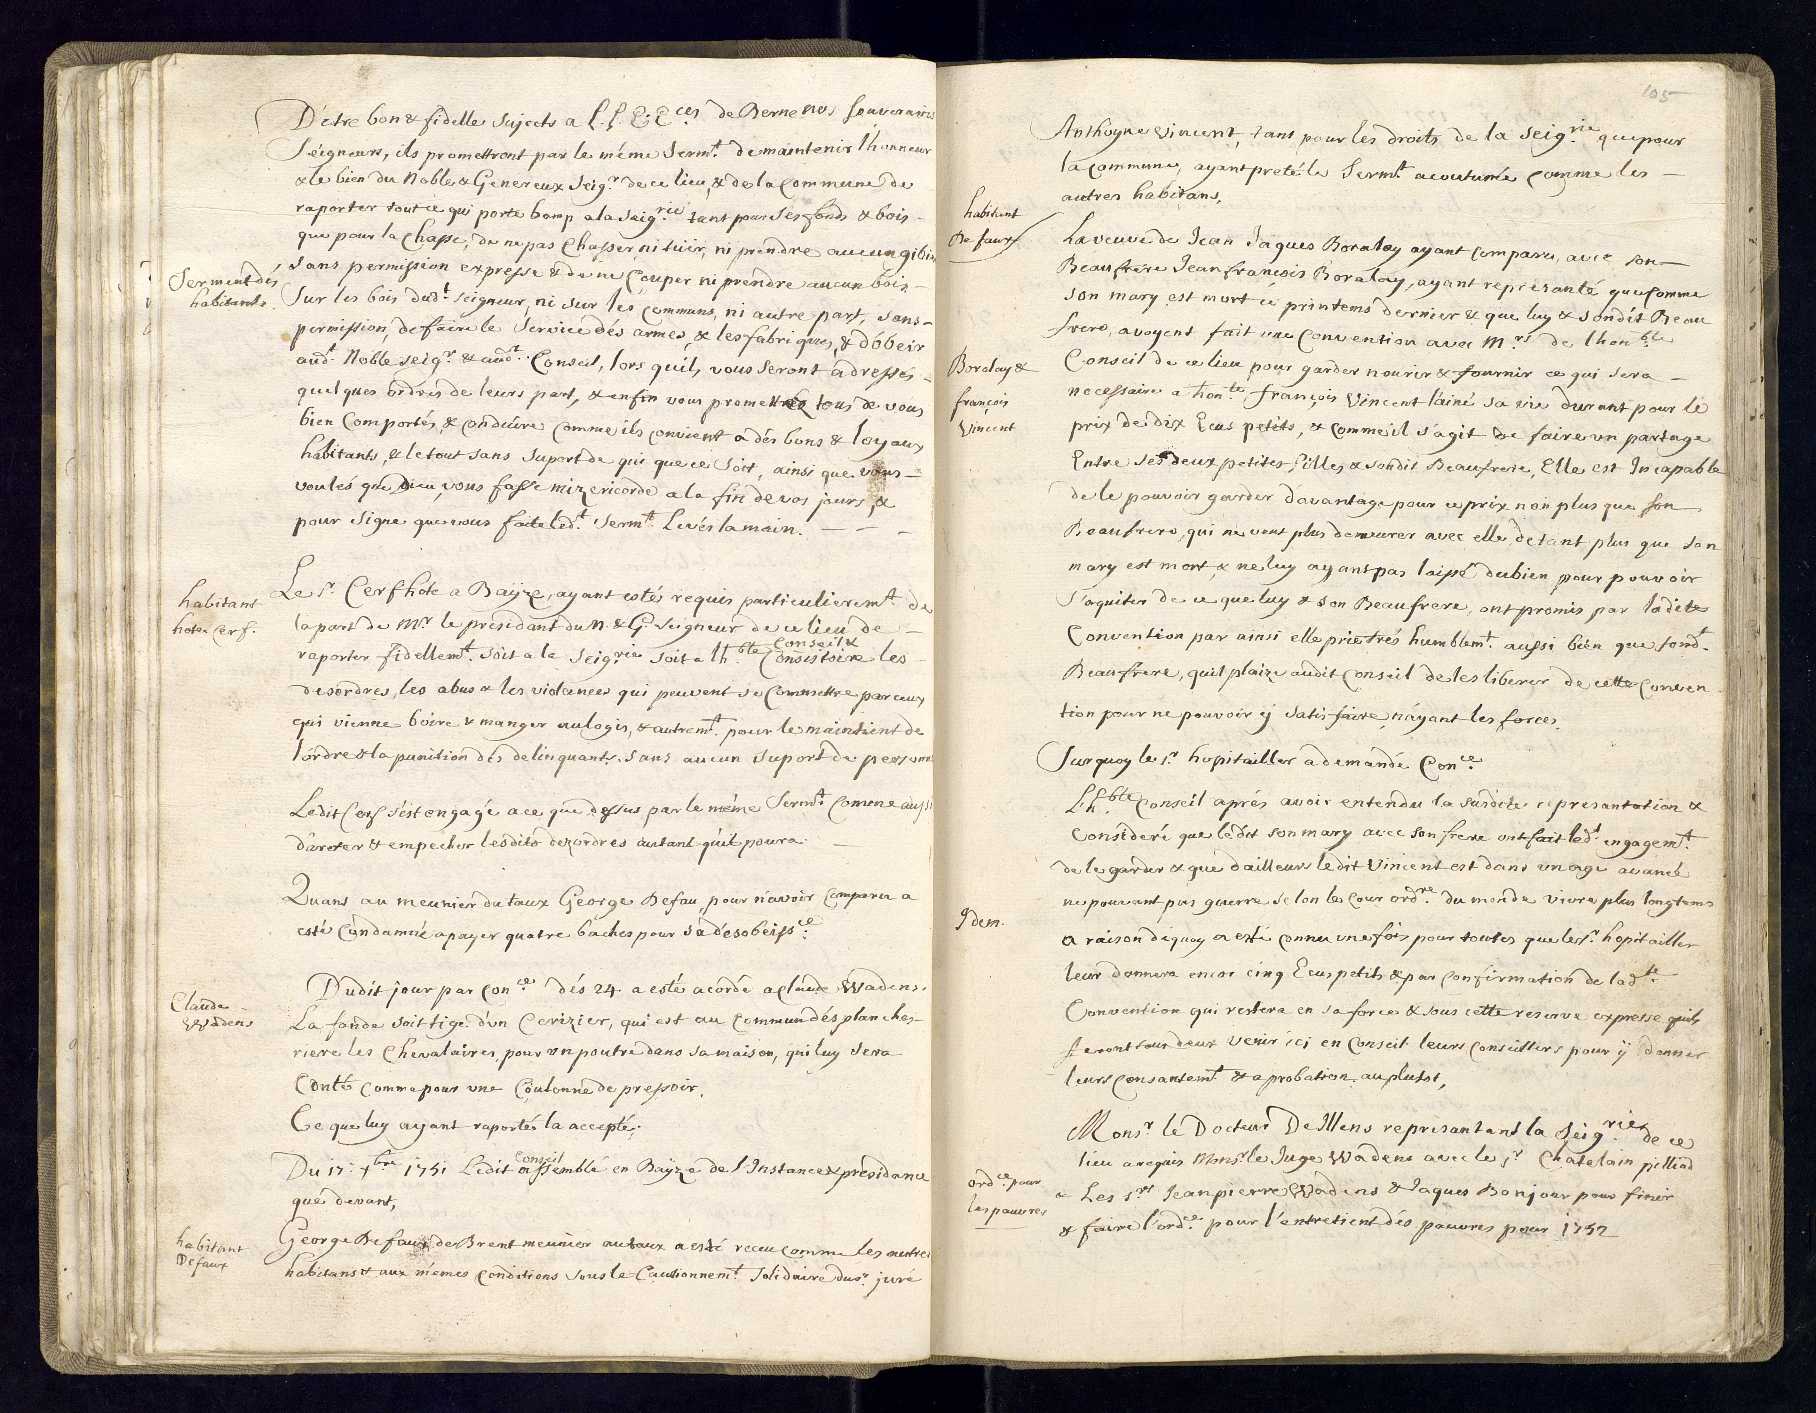 D'etre bon & fidelle Sujects a L. L. E. E.ces de Berne nos Souverains
Seigneurs, ils promettront par le même Serm.t de maintenir l'honneur
& le bien du Noble & Genereux Seig.r de ce lieu, & de la Commune de
raporter tout ce qui porte bamp a la Seig.rie tant pour Ses fonds & bois
que pour la Chasse, de ne pas Chasser, ni tüir, ni prendre aucun gibie
Serment dés
habitants
Sans permission expresse & de ne Couper ni prendre aucun bois
Sur les bois dud.t Seigneur, ni sur les communs, ni autre part, Sans
permission, de faire le Service dés armes, & les fabriques, & d'obeir
aud.t Noble Seig.r & aud.t Conseil, lors quils vous Seront adressés
quelques ordrés de leurs part, & enfin vous promettréz tous de vous
bien Comportés, & conduire comme ils convient a dés bons & loyaux
habitants, & le tout sans Suport de qui que ce Soit, ainsi que vous
voulés que Dieu vous fasse mizericorde a la fin de vos jours, &
pour Signe que vous faite led.t Serm.t Levés la main.
habitant
hote Cerf.
Le S.r Cerf hote a Baÿze, ayant estés requis particulierem.t de
la part de M.r le présidant du N. & G. Seigneur de ce lieu de
raporter fidellem.t Soit a la Seig.rie Soit a lh.ble Conseil & Consistoire les
desordres, les abus & les violances qui peuvent se Commettre par ceux
qui vienne boire & manger au logis, & autrem.t pour le maintient de
l'ordre & la punition dés delinquants. Sans aucun Suport de personne
Ledit Cerf s'est engagée a ce que dessus par le méme Serm.t Comme aussi
d'areter & empecher lesdits dezordres autant qu'il poura.
Quant au meunier du taux George Defau, pour n'avoir comparu a
esté Condamné a payer quatre baches pour Sa désobeiss.ce
Claude
Wadens
Dudit jour par Con.ce dés 24 a esté acordé a Claude Wadens.
La fonde Soit tige d'un Cerizier, qui est au Commun dés planches
riere les Chevalaires, pour un poutre dans sa maison, qui luy sera
Conté comme pour une Coulonne de pressoir,
Ce que luy ayant raportés la accepté;
Du 17.e x.bre 1751 Ledit Conseil assemblé en Baÿze de l'Instance & présidance
qué devant,
habitant
Defaux
George Defaux de Brent meunier au taux a esté recu comme les autres
habitans & aux mémes Conditions sous le Cautionnem.t Solidaire du S.r juré
105
Anthoyne Vincent, tant pour les droits de la Seig.rie que pour
la commune, ayant preté le Serm.t acoutumé comme les
autres habitans,
habitant
Defaux
La veuve de Jean Jaques Boralay ayant comparu, avec son
Beaufrere Jean françois Boralay, ayant représanté que comme
Son mary est mort cé printems dernier & que luy & sondit Beau
frere, avoyent fait une Convention avec M.rs de lhon.ble
Boralay &
françois
Vincent
Conseil de ce lieu pour garder nourir & fournir ce qui sera
necessaire a hon.te françois Vincent l'ainé sa vie durant pour le
prix de dix Ecus petits, & comme il s'agit de faire un partage
Entre ses deux petites filles & sondit Beaufrere, Elle est Incapable
de le pouvoir garder davantage pour ce prix non plus que son
Beaufrere, qui ne veut plus demeurer avec elle, detant plus que son
mary est mort, & ne luy ayant pas laissé du bien pour pouvoir
S'aquiter de ce que luy & son Beaufrere, ont promis par ladite
Convention par ainsi elle prie trés humblem.t aussi bien que sond.t
Beaufrere, quil plaize audit Conseil de les liberer de cette Conven
tion pour ne pouvoir ÿ satisfaire, n'áyant les forces,
Sur quoy le S.r hopitailler a demandé Con.ce
L'h.ble Conseil aprés avoir entendu la Susdite représantation &
Consideré que ledit son mary avec son frere ont fait led.t engagem.t
de le garder & que dailleurs ledit Vincent est dans un age avancé
ne pouvant pas guerre selon le Cour ord.re du monde vivre plus longtems
Idem.
a raison dequoy a esté connu une fois pour toutes que le S.r hopitailler
leur donnera encor cinq Ecus petits & par confirmation de lad.te
Convention qui restera en sa force & sous cette reserve expresse quils
feront tous deux venir ici en Conseil leurs conseillers pour ÿ donner
leurs Consantem.t & aprobation. au plutot,
Mons.r le Docteur De Illens représantant la Seig.rie de ce
lieu a requis Mons.r le Juge Wadens avec le S.r Chatelain pilliod
ord.ce pour
les pauvres
& Les S.rs Jean pierre Wadens & Jaques Bonjour pour finir
& faire l'ord.ce pour l'entretient dés pauvres pour 1752